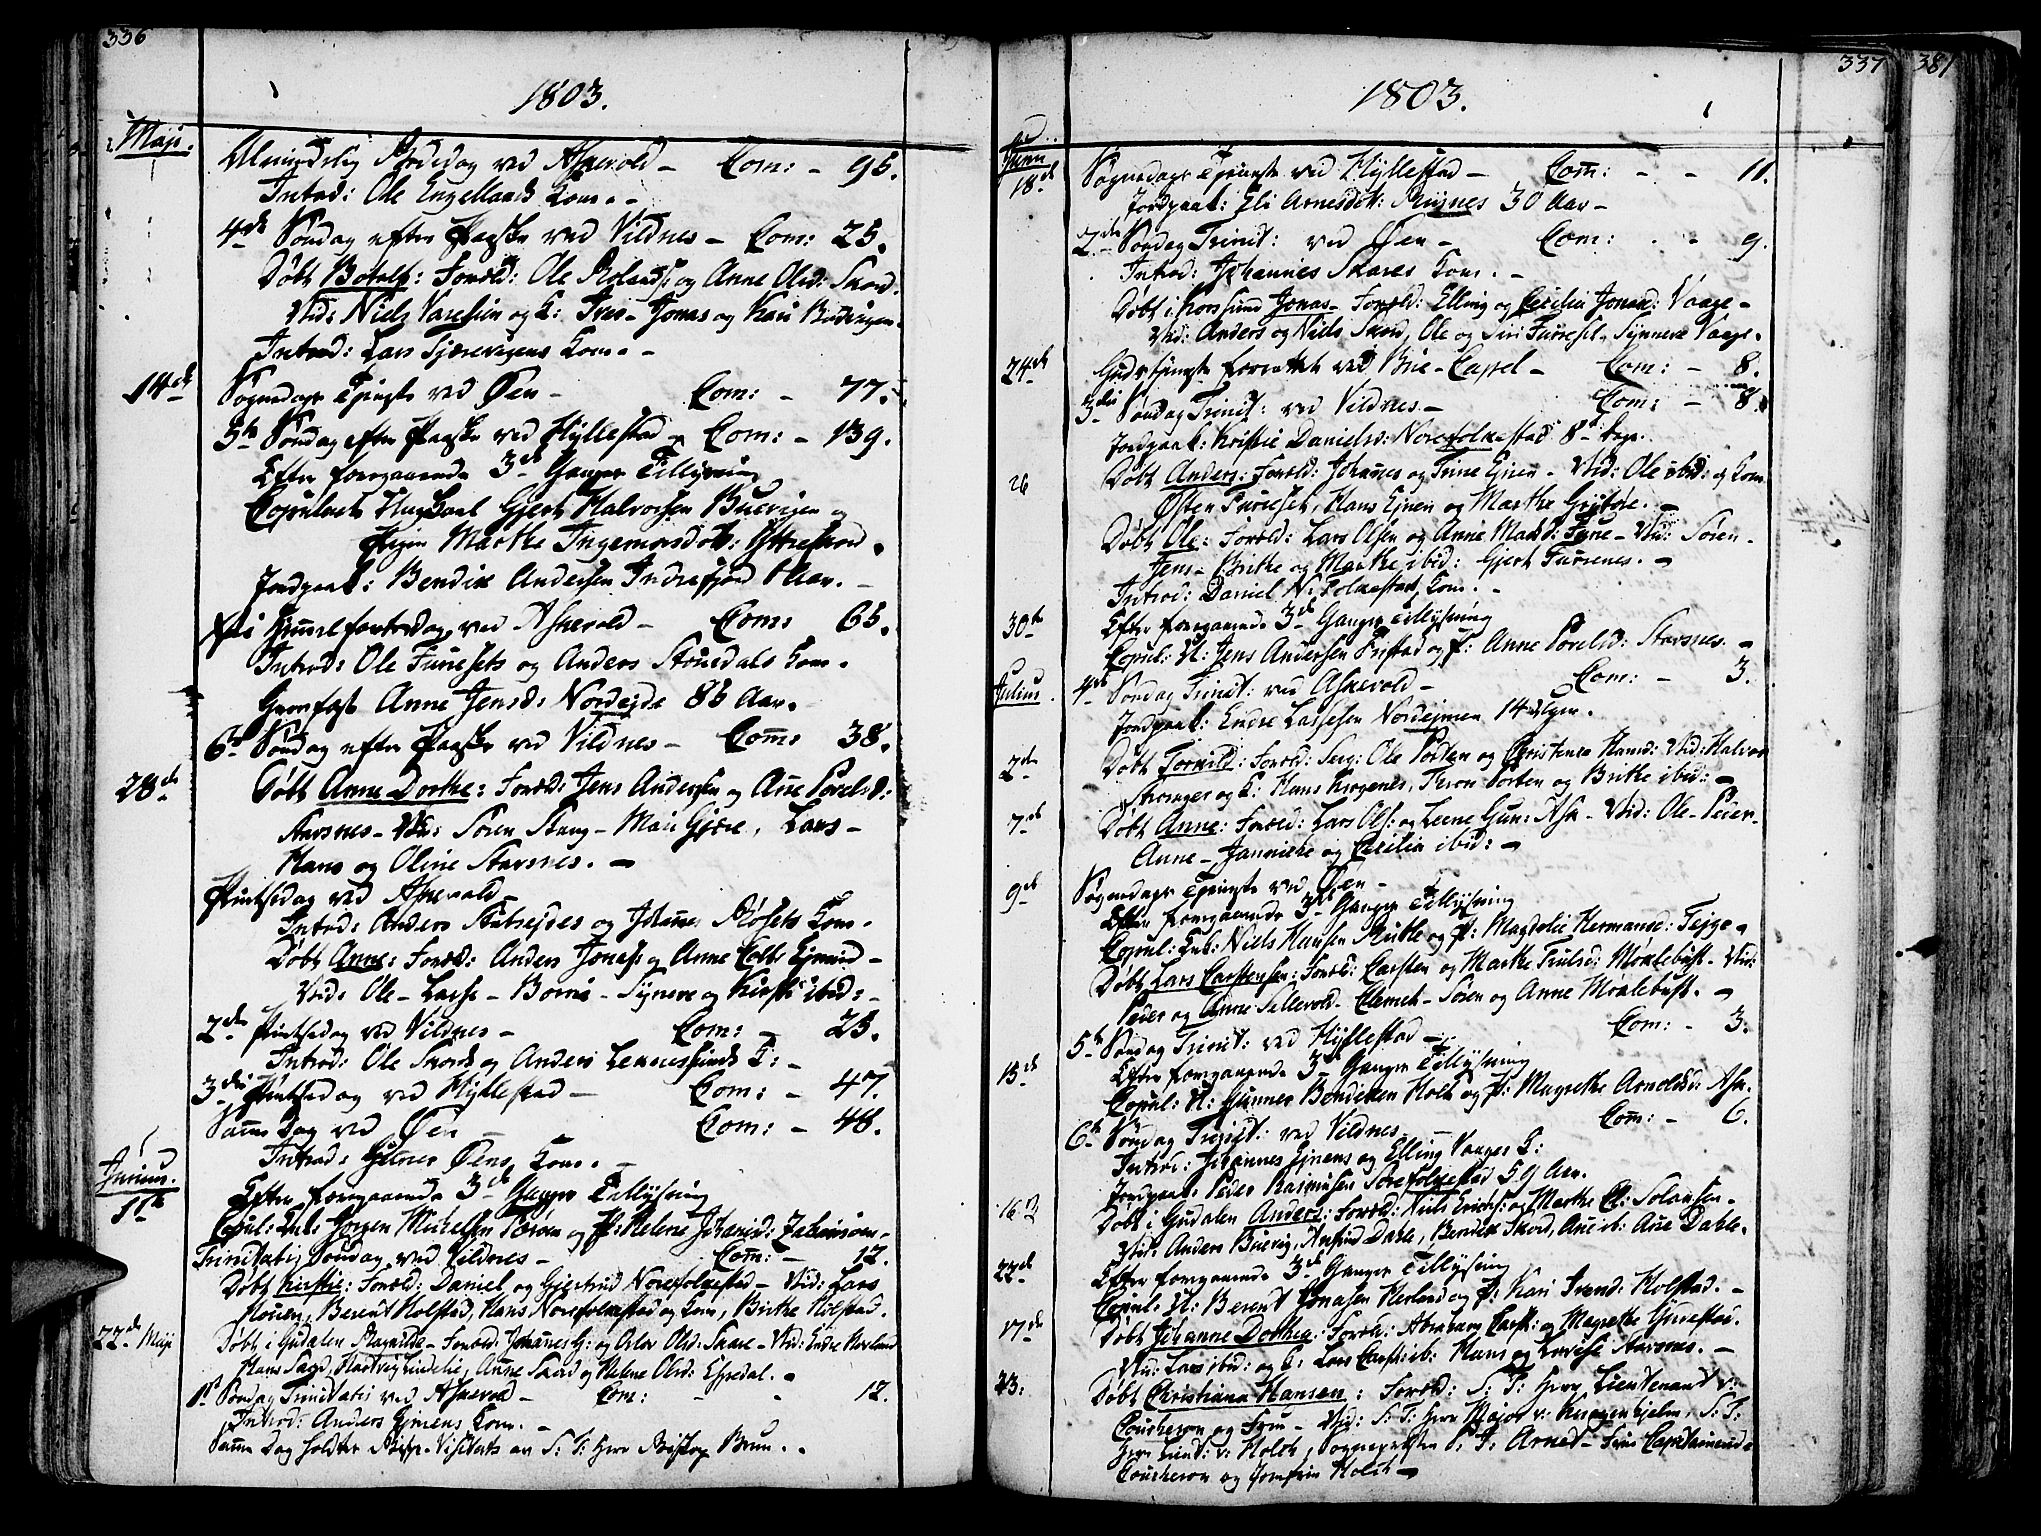 336
1803.
Maji.
Almindelig Bededag ved Askevold – Com: – 95.
Introd: Ole Engellands Kone. –
4de Søndag efter Paaske ved Vildnes – Com: 25.
Døbt Botolf: Foræld: Ole Rolands: og Anne Olsd: Skord.
Vid: Niels Varesien og K: Iver – Jonas og Kari Buevigen.
Introd: Lars Tjærevigens Kone. –
14de Søgnedags Tjeneste ved Øen – Com: – 77.
5te Søndag efter Paaske ved Hyllestad – Com: – 139.
Efter foregaaende 3de Ganger Tillysning
Copuleret Ungkarl Gjert Halvorsen Buevigen og
Pigen Marthe Ingemorsdot: Yttreskord.
Jordpaak: Bendix Andersen Indrefjord 1 Aar. –
Xsti Himmelfartsdag ved Askevold – Com: 65.
Introd: Ole Furesets og Anders Strindals Kone.
Gravfæst Anne Jensd: Nordejde 86 Aar.
6te Søndag efter Paaske ved Vildnes – Com: 38.
28de Døbt Anne Dorthe: Foræld: Jens Andersen og Ane Povelsd:
Starsnes – Vid: Søren Stang – Mari Gjøre, Lars –
Hans og Oline Starsnes. –
Pintsedag ved Askevold –
Introd: Anders Stubsejdes og Johannes Røsets Kone.
Døbt Anne: Foræld: Anders Jonas: og Anne Colb: Ejnen –
Vid: Ole – Lasse – Borni – Synneve og Kirsti ibid: –
2den Pintsedag ved Vildnes – Com: – 25.
Introd: Ole Skords og Anders Leknessunds K: –
3die Pintsedag ved Hyllestad – Com: – 47.
Samme Dag ved Øen – Com: – 48.
Introd: Øens Kone. –
Junius.
1te Efter foregaaende 3de Ganger Tillysning
Copul: Enk: Jørgen Michelsen og P: Helene Johansd:
Trinitatis Søndag ved Vildnes – Com: – 12.
Døbt Kirstie: Foræld: Daniel og Gjertrud Norefolkestad – Vid: Lars
Berent Holstad, Hans Norefolkestad og Kone, Birthe Holstad.
22de Maji Døbt i Gudalen Ragnilde – Foræld: Johannes G: og Olsd: Skare – Vid: Endre Norland
Anne Skard og Helene Olsd: Espedal. –
1ste Søndag Trinitatis ved Askevold – Com: – 12.
Introd: Anders Ejnens Kone. –
Samme Dag holdtes Bispe-Visitats av S: T: Herr Biskop Brun. –
337 381
1803.
Juni
18de Søgnedags Tjeneste ved Hyllestad – Com: – 11.
Jordpaak: Eli Arnesdot: Risnes 30 Aar –
2den Søndag Trinit: ved Øen – Com: – 9.
Introd: Johannes Skares Kone. –
Døbt i Korssund Jonas – Foræld: Elling og Cicilia Jonasd: Vaage –
Vid: Anders og Niels Skord, Ole og Siri Furreset, Synneve Vaage.
24de Gudstjeneste forrettet ved Brie-Capel – Com: – 8.
3die Søndag Trinit: ved Vildnes – Com: – 8.
Jordpaak: Kirstie Danielsd: Norefolkestad 8te Dage.
26 Døbt Anders: Foræld: Johannes og Trine Ejnen – Vid: Ole ibid: og Kone
Østen Furreset, Hans Ejnen og Marthe –
Døbt Ole: Foræld: Lars Olsen og Anne Madsd: Fure – Vid: Søren –
Jens – Brithe og Marthe ibid: Gjert Furenes. –
Introd: Daniel N: Folkestad Kone. –
30te Efter foregaaende 3de Ganger Tillysning
Copul: U: Jens Andersen og P: Anne Povelsd: Starsnes. –
Julius. 4de Søndag Trinit: ved Askevold – Com: – 3.
Jordpaak: Endre Lassesen Nordejmen 14 Uger.
2de Døbt Torkild: Foræld: Serg: Ole Porten og Christence Hansd: Vid: Halvor
Stronger og K: Hans Krogenes, Torten og Brithe ibid: –
7de Døbt Anne: Foræld: Lars Ols: og Leene Gun: Ask – Vid: Ole – Peier –
Anne – Jannicke og Cicilia ibid: –
9de Søgnedags Tjeneste ved Øen –
Efter foregaaende 3de Ganger Tillysning
Copul: Enk: Niels Hansen og P: Magdeli Hermansd: Tejge –
Døbt Lars Carstensen: Foræld: Carsten og Marthe Trulsd: Moklebust – Vid:
Peder og Anne Sellevold – Clemet – Søren og Anne Moklebust. –
5te Søndag Trinit: ved Hyllestad – Com: – 3.
15de Efter foregaaende 3de Ganger Tillysning
Copul: U: Gunner Bendixen Holt og P: Magrethe Arnoldsd: Ask.
6te Søndag Trinit: ved Vildnes – Com: – 6.
Introd: Johannes Ejnens og Elling Vaages K:
Jordpaak: Peder Rasmusen Sørefolkestad 59 Aar.
16: Døbt i Gudalen Anders: Foræld: Niels Erichs: og Marthe
Vid: Anders Buevig, Dahle, Bendix Skord, Ane ib: Ane Dahle.
22de Efter foregaaende 3de Ganger Tillysning
Copul: U: Berent Jonasen Herland og P: Kari Iversd: Holstad. –
17de Døbt Johanne Dorthea: Foræld: Abraham Carst: og Magrethe
Vid: Lars ibid: og K: Lars Carst: ib: Hans og Lovise Starsnes. –
23: Døbt Christiana Hansen: Foræld: S: T: Herr Lieutenant v:
Coucheron og Frue – Vid: S: T: Herr Major v: Krogenhjelm, S: T:
Herr Lieut: v: Holck, Sognepræsten S: T: Arnet – Frue Capitainende
Coucheron og Jomfrue Holck –